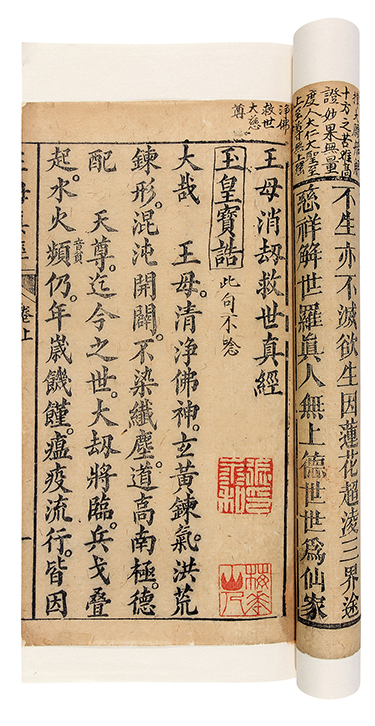 十方之苦難高
證妙果無量
度人大仁大聖至
不生亦不滅欲生因蓮花超凌三界途
慈祥解世羅眞人無上德世世爲仙家
淨佛
救世
大慈
尊
王母消劫救世真經
玉皇寶誥 此句不唸
大哉 王母。清淨佛神。玄黃鍊氣。洪荒
鍊形。混沌開闢。不染纖塵。道高南極。德
配 天尊。迄今之世。大劫將臨。兵戈叠
起。水火頻仍。年歲饑饉。瘟疫流行。皆因
卷上 一